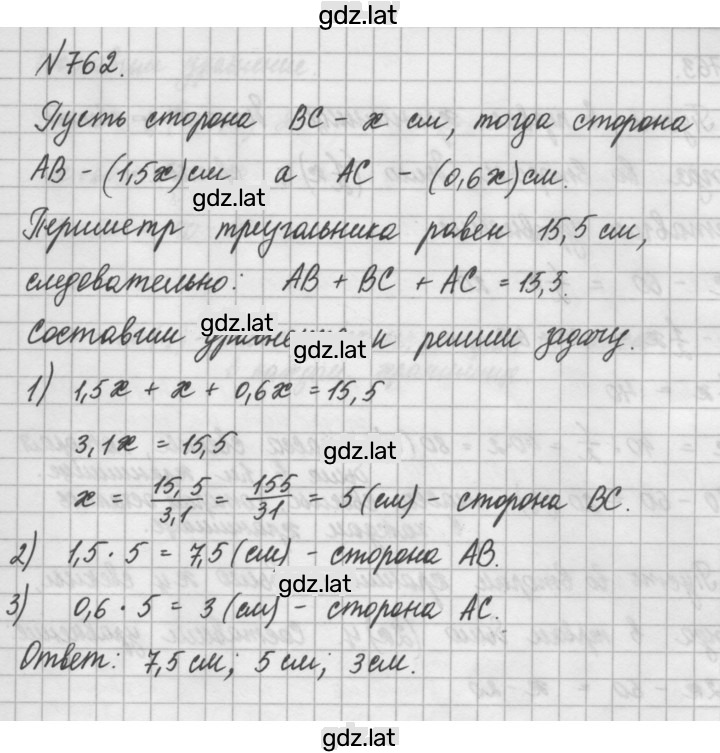 gdz.lat
№762.
Пусть сторона BC - x см, тогда сторона
AB - (1,5x)см а AC - (0,6x)см.
gdz.lat
Периметр треугольника равен 15,5 см,
следовательно: AB + BC + AC = 15,5.
gdz.lat
Составим уравнение и решим задачу.
gdz.lat
1) 1,5x + x + 0,6x = 15,5
3,1x = 15,5
gdz.lat
x = 15,5/3,1 = 155/31 = 5(см) - сторона BC.
2) 1,5 · 5 = 7,5(см) - сторона AB.
gdz.lat
3) 0,6 · 5 = 3(см) - сторона AC.
Ответ: 7,5см; 5см; 3см.
gdz.lat